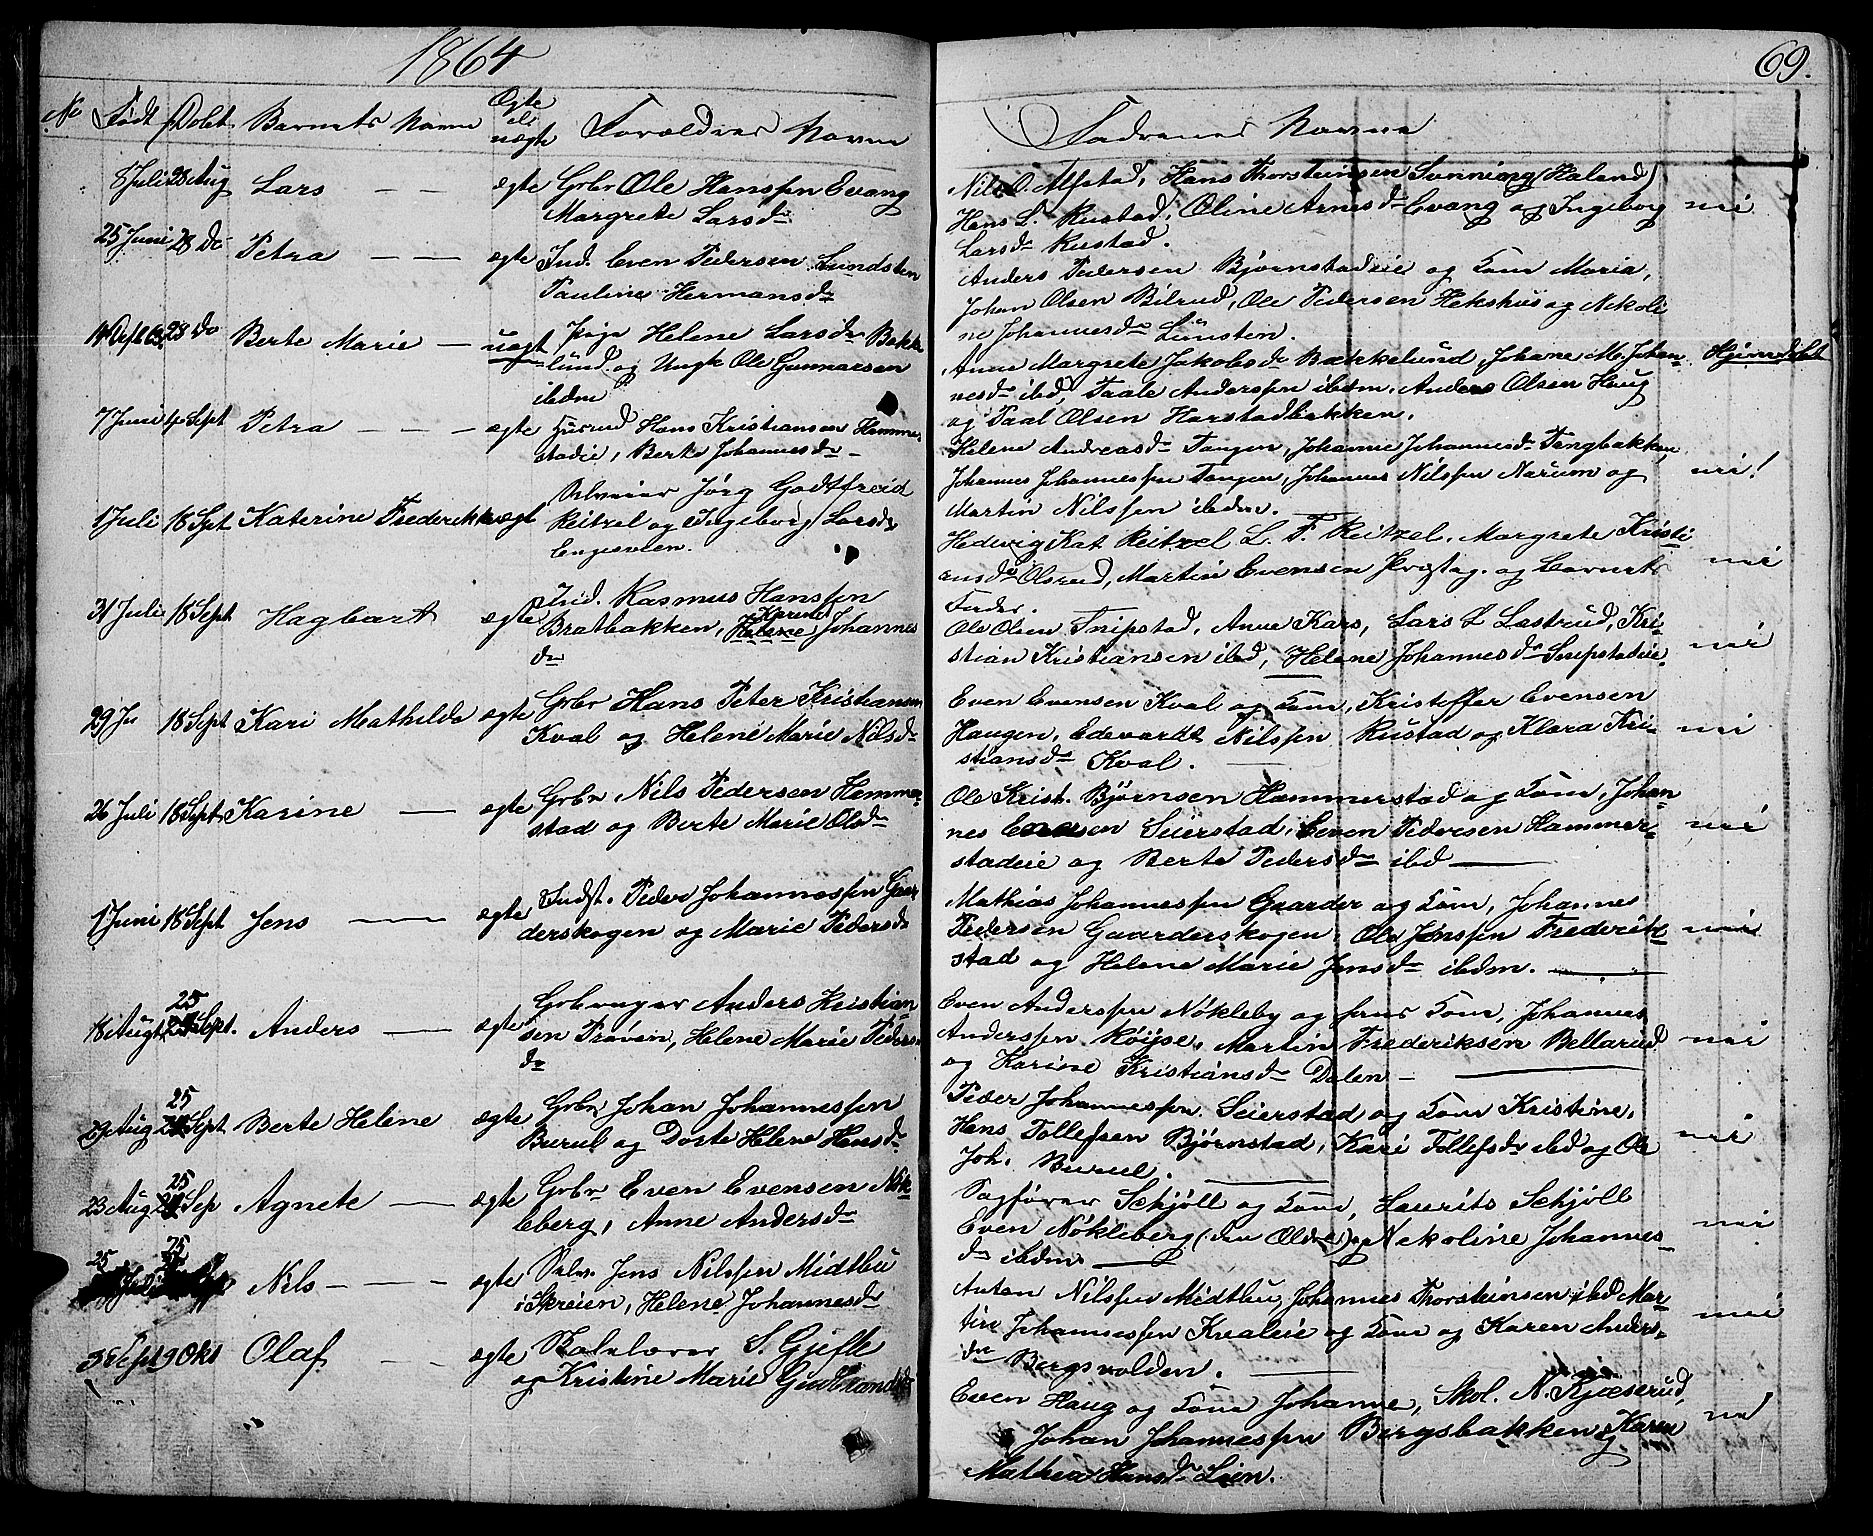 1864
69.
No Født Døbt Barnets Navn Ægte el uægte Forældres Navne
Fadrenes Navne
8 Juli 28 Aug Lars — — ægte Grbr Ole Hanssen Evang
Margrete Larsdr
Nils O. Alfstad, Hans Thorsteinsen Sønning (Haland)
Hans L. Rustad, Oline Arnesdr Evang og Ingeborg nei
Larsdr Rustad.
25 Juni 28 do Petra — — — ægte Ind. Even Pedersen Lundsten
Pauline Hermansdr
Anders Pedersen Bjørnstadeie og Kone Maria,
Johan Olsen Bilrud, Ole Pedersen Hekshus og Nikoli
ne Johannesdr Lünsten.
28 do Berte Marie — uægt Pige Helene Larsdr Bekke
lund og Ungk Ole Gunnarsen
ibdm
Anne Margrete Jakobsdr Bækkelund, Johane M. Johan- Hjemdøbt
nesdr ibd, Paale Anderssen ibdm. Anders Olsen Haug
og Paal Olsen Harstadbakken.
7 Juni Sept Petra — — — ægte Husmd Hans Kristiansen Hammer
stadeie, Berte Johannesdr —
Helene Andreasdr Tangen, Johanne Johannesdr Tangbakken,
Johannes Johannessen Tangen, Johannes Nilssen Narum og nei!
Martin Nilssen ibdm.
1 Juli 18 Spt Katerine Frederikke ægt Jørg Godtfreid
Reitzel og Ingeborg Larsdr
Engesveen.
Hedevig Kat Reitzel L. F. Reitzel. Margrete Kristi
ansdr Olsrud, Martin Evensen Præstg. og Barnets nei
Fader.
31 Juli 18 Sept Hagbart ægte Ind. Rasmus Hanssen
Bratbakken, Helene Karine Johannes
dr
Ole Olsen Snipstad, Anne Kars, Lars L Lastrud, Kri-
stian Kristiansen ibd, Helene Johannesdr Snipstadeie. nei
29 Ju 18 Sept Kari Mathilda ægte Grbr Hans Peter Kristiansen
Kval og Helene Marie Nilsdr
Even Evensen Kval og Kone, Kristoffer Evensen
Haugen, Edevardt Nilssen Rustad og Klara Kri- nei
stiansdr Kval.
26 Juli 18 Sept Karine — ægte Grbr Nils Pedersen Hammer-
stad og Berte Marie Olsdr
Ole Krist. Bjørnsen Hammerstad og Kone, Johan-
nes Evensen Seierstad, Even Pedersen Hammer- nei
stadeie og Berte Pedersdr ibd —
1 Juni 18 Sept Jens — ægte Indst. Peder Johannessen Gaar
derskogen og Marie Pedersdr
Mathias Johannessen Gaarder og Kone, Johannes
Pedersen Gaarderskogen, Ole Jenssen Frederik- nei
stad og Helene Marie Jensdr ibdm. —
18 Augt 25 Sept. Anders — ægte Grbruger Anders Kristian
sen Prøven, Helene Marie Peders
dr
Even Anderssen Nøkleby og hans Kone, Johannes
Anderssen Røise, Martin Frederiksen Bellerud nei
og Karine Kristiansdr Dalen —
29 Aug 25 Sept Berte Helene ægte Grbr Johan Johannessen
Burul og Dorte Helene Hansdr
Peder Johannessen Seierstad og Kone Kristine,
Hans Tollefsen Bjørnstad, Kari Tollefsdr ibd og Ole nei
Joh. Burul.
23 Aug 25 Sep Agnete — ægte Grbr Even Evensen Nøk
leberg, Anne Andersdr
Sagfører Schjøll og Kone, Laurits Schjøll
Even Nøkleberg (den Ældre) og Nikoline Johannes- nei
dr ibdm —
25 Juli 25 Nils — — ægte Jens Nilssen Midtbu
i Skreien, Helene Johannesdr
Anton Nilssen Midtbu, Johannes Thorsteinsen ibd Mar-
tin Johannessen Kvaleie og Kone og Karen Anders- nei
dr Bergsvolden. —
3 Sept 9 Okt Olaf — ægte Skolelærer S. Gjefle
og Kristine Marie Gudbrandsdr
Even Haug og Kone Johanne, Skol. N. Kjæserud,
Johan Johannessen Bergsbakken & Karen nei
Mathea Hansdr Lien.